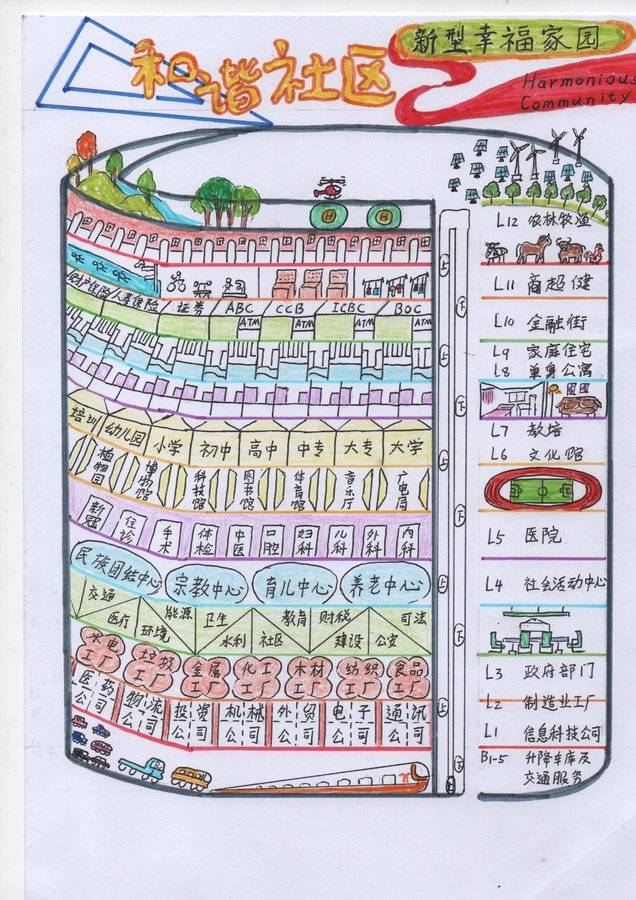 和谐社区
新型幸福家园
Harmonious
Community
H H
财产保险 人寿保险 证券 ABC CCB ICBC BOC
ATM ATM ATM ATM
培训 幼儿园 小学 初中 高中 中专 大专 大学
植物园 博物馆 科技馆 图书馆 体育馆 音乐厅 广电局
新冠 住诊 手术 体检 中医 口腔 妇科 儿科 外科 内科
民族团结中心 宗教中心 育儿中心 养老中心
交通 能源 卫生 教育 财税 司法
医疗 环境 水利 社区 建设 公安
水电工厂 垃圾工厂 金属工厂 化工工厂 木材工厂 纺织工厂 食品工厂
医药公司 物流公司 投资公司 机械公司 外贸公司 电子公司 通讯公司
L12 农林牧渔
L11 商超健
L10 金融街
L9 家庭住宅
L8 单身公寓
L7 教培
L6 文化馆
L5 医院
L4 社会活动中心
L3 政府部门
L2 制造业工厂
L1 信息科技公司
B1-5 升降车库及
交通服务